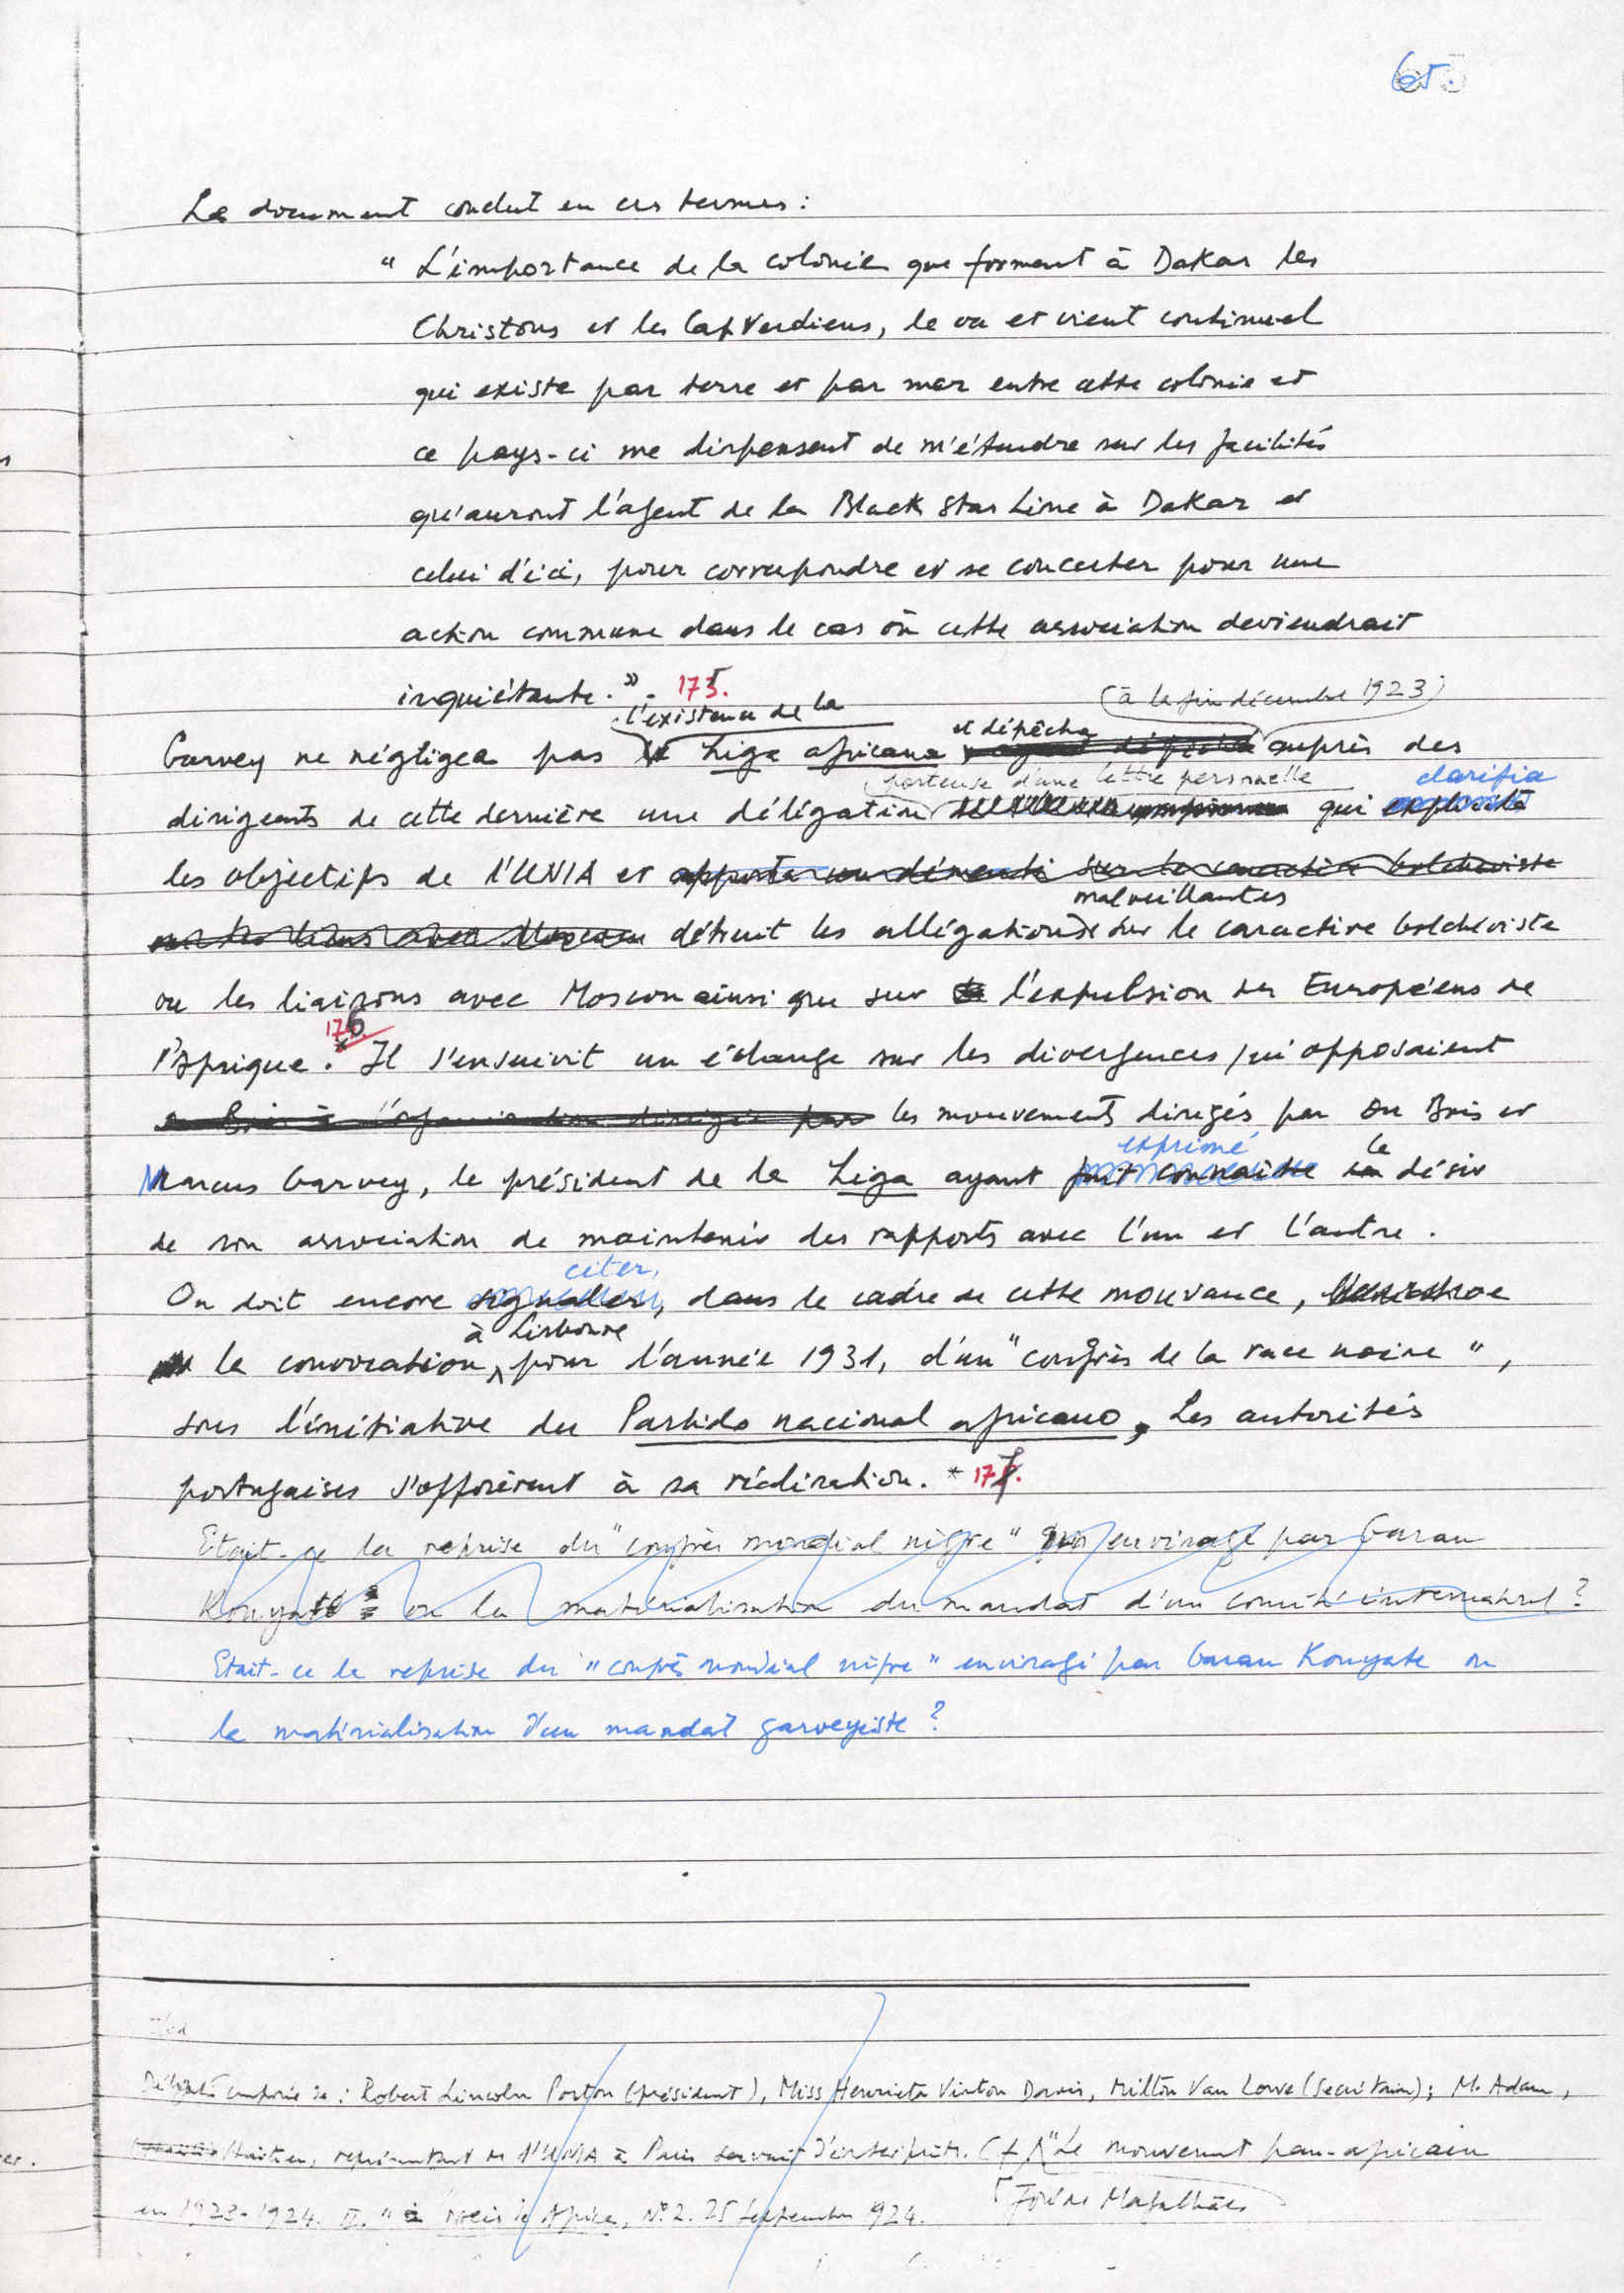 65.
Le document conclut en ces termes :
" L'importance de la colonie que forment à Dakar les
Christons et les CapVerdiens, le va et vient continuel
qui existe par terre et par mer entre cette colonie et
ce pays-ci me dispensent de m'étendre sur les facilités
qu'auront l'agent de la Black Star Line à Dakar et
celui d'ici, pour correspondre et se concerter pour une
action commune dans le cas où cette association deviendrait
inquiétante. ". 175.
l'existence de la
(à la fin décembre 1923)
et dépêcha
Garvey ne négligea pas Liga africana auprès des
porteuse d'une lettre personnelle
clarifia
dirigeants de cette dernière une délégation qui explicita
les objectifs de l'UNIA et apporta un démenti sur le caractère bolcheviste
malveillantes
détruit les allégations sur le caractère bolchéviste
ou les liaisons avec Moscou ainsi que sur l'expulsion des Européens de
176
l'Afrique. * Il s'ensuivit un échange sur les divergences qui opposaient
les mouvements dirigés par Du Bois et
exprimé
le
Marcus Garvey, le président de la Liga ayant fait connaître désir
de son association de maintenir des rapports avec l'un et l'autre.
citer,
On doit encore signaler, dans le cadre de cette mouvance,
à Lisbonne
la convocation, pour l'année 1931, d'un "congrès de la race noire",
sous l'initiative du Partido nacional africano, Les autorités
portugaises s'opposèrent à sa réalisation. * 177.
Etait-ce la reprise du "congrès mondial nègre" envisagé par Garan
Kouyaté ou la matérialisation du mandat d'un comité international ?
Etait-ce la reprise du "congrès mondial nègre" envisagé par Garan Kouyate ou
la matérialisation d'un mandat garveyiste ?
Délégation composée de : Robert Lincoln Poston (président), Miss Henrieta Vinton Davis, Milton Van Lowe (Secrétaire); M. Adam,
Haïtien, représentant de l'UNIA à Paris servait d'interprète. "Le mouvement pan-africain
en 1923-1924. II." Africa, Nº 2. 25 Septembre 1924. José de Magalhães